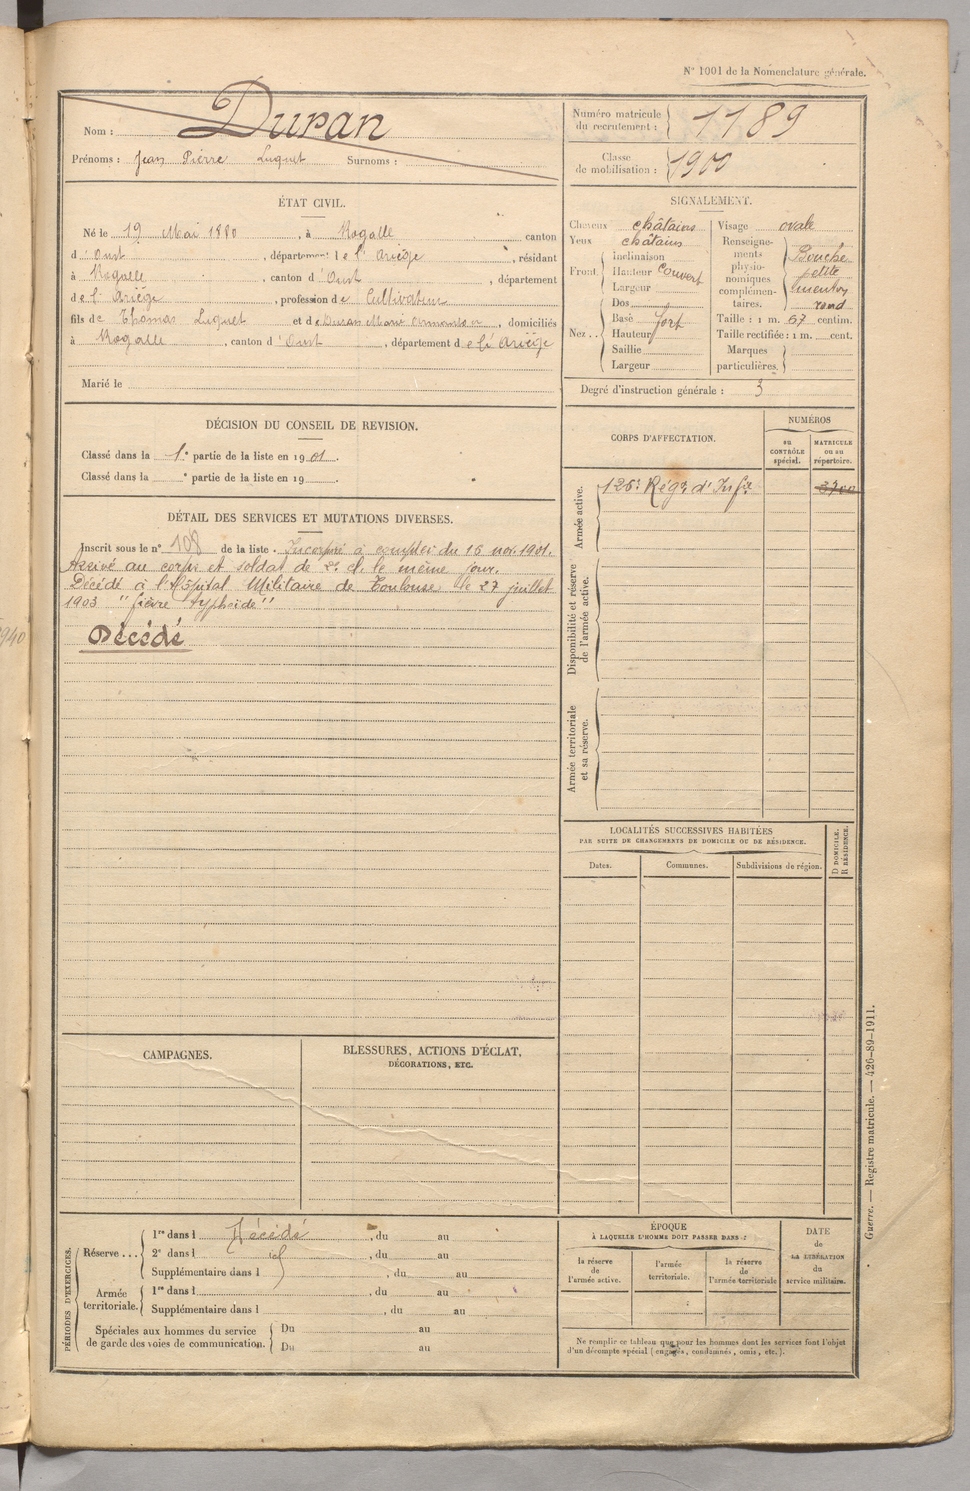 N° 1001 de la Nomenclature générale.
Nom : Duran
Prénoms : Jean Pierre Luquet Surnoms :
Numéro matricule du recrutement : 1189
Classe de mobilisation : 1900
ÉTAT CIVIL.
Né le 19 Mai 1880, à Rogalle canton
d'Oust, département de l'Ariège, résidant
à Rogalle, canton d'Oust, département
de l'Ariège, profession de Cultivateur
fils de Thomas Luquet et de Duran Marie, domiciliés
à Rogalle, canton d'Oust, département de l'Ariège
Marié le
SIGNALEMENT.
Cheveux châtains
Yeux châtains
Front. Inclinaison
Hauteur Couvert
Largeur
Nez .. Dos
Base fort
Hauteur
Saillie
Largeur
Visage ovale
Renseignements physionomiques complémentaires. Bouche petite menton rond
Taille : 1 m. 67 centim.
Taille rectifiée : 1 m. cent.
Marques particulières.
Degré d'instruction générale : 3
DÉCISION DU CONSEIL DE REVISION.
Classé dans la 1e partie de la liste en 1901.
Classé dans la e partie de la liste en 19 .
DÉTAIL DES SERVICES ET MUTATIONS DIVERSES.
Inscrit sous le n° 108 de la liste. Incorporé à compter du 16 nov. 1901.
Arrivé au corps et soldat de 2e cl. le même jour.
Décédé à l'Hôpital Militaire de Toulouse le 27 juillet
1903 "fièvre typhoïde"
Décédé
CORPS D'AFFECTATION.
NUMÉROS
au CONTRÔLE spécial.
MATRICULE ou au répertoire.
Armée active.
126e Régt d'Infie 3700
Disponibilité et réserve de l'armée active.
Armée territoriale et sa réserve.
LOCALITÉS SUCCESSIVES HABITÉES
PAR SUITE DE CHANGEMENTS DE DOMICILE OU DE RÉSIDENCE.
Dates.
Communes.
Subdivisions de région.
D DOMICILE.
R RÉSIDENCE.
CAMPAGNES.
BLESSURES, ACTIONS D'ÉCLAT,
DÉCORATIONS, ETC.
PÉRIODES D'EXERCICES.
Réserve ... 1re dans l Décédé, du au
2e dans l, du au
Supplémentaire dans l, du au
Armée territoriale. 1re dans l, du au
Supplémentaire dans l, du au
Spéciales aux hommes du service de garde des voies de communication. Du au
Du au
ÉPOQUE
À LAQUELLE L'HOMME DOIT PASSER DANS :
la réserve de l'armée active.
l'armée territoriale.
la réserve de l'armée territoriale
DATE de LA LIBÉRATION du service militaire.
Ne remplir ce tableau que pour les hommes dont les services font l'objet
d'un décompte spécial (engagés, condamnés, omis, etc.).
Guerre. — Registre matricule. — 426-89-1911.